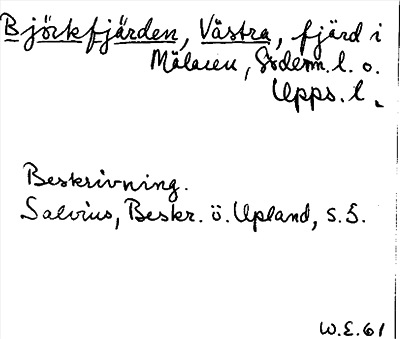 Björkfjärden, Västra, fjärd i
Mälaren, Söderm. l. o.
Upps. l.
Beskrivning.
Salvius, Beskr. ö. Upland, s. 5.
W.E. 61